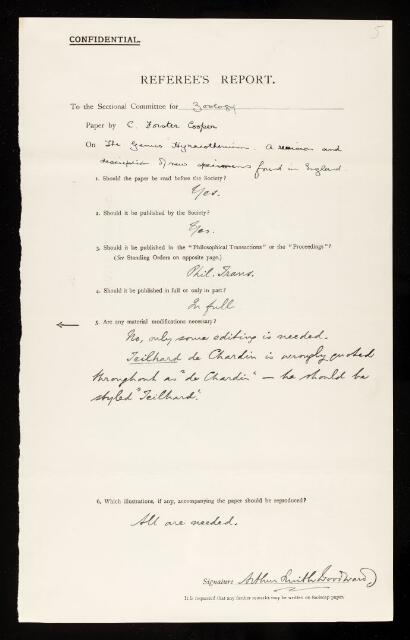 5
CONFIDENTIAL.
REFEREE'S REPORT.
To the Sectional Committee for Zoology
Paper by C. Forster Cooper
On The Genus Hyracotherium. A revision and
description of new specimens found in England.
1. Should the paper be read before the Society?
Yes.
2. Should it be published by the Society?
Yes.
3. Should it be published in the "Philosophical Transactions" or the "Proceedings"?
(See Standing Orders on opposite page.)
Phil. Trans.
4. Should it be published in full or only in part?
In full
5. Are any material modifications necessary?
No, only some editing is needed.
Teilhard de Chardin is wrongly quoted
throughout as "de Chardin" — he should be
styled "Teilhard".
6. Which illustrations, if any, accompanying the paper should be reproduced?
All are needed.
Signature Arthur Smith Woodward
It is requested that any further remarks may be written on foolscap paper.